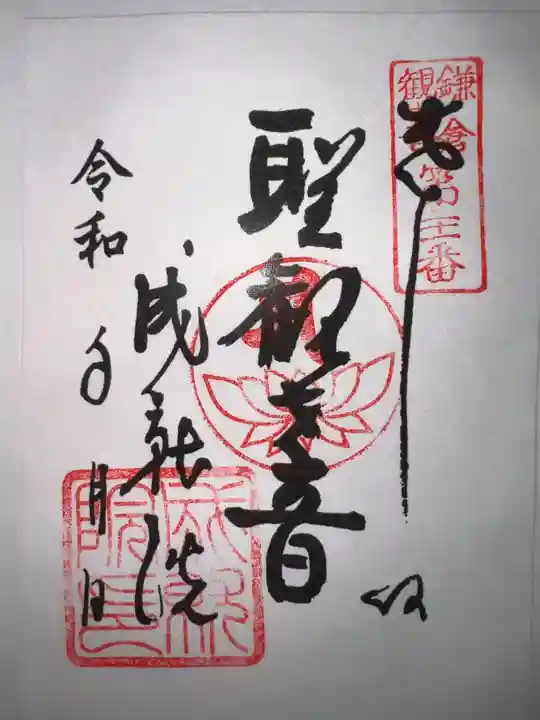 鎌倉
観音
奉
拝
聖観世音
成就院
令和 年 月 日